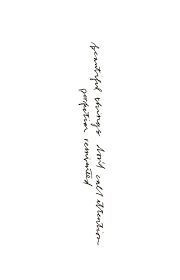 beautiful things don't call attention
perfection